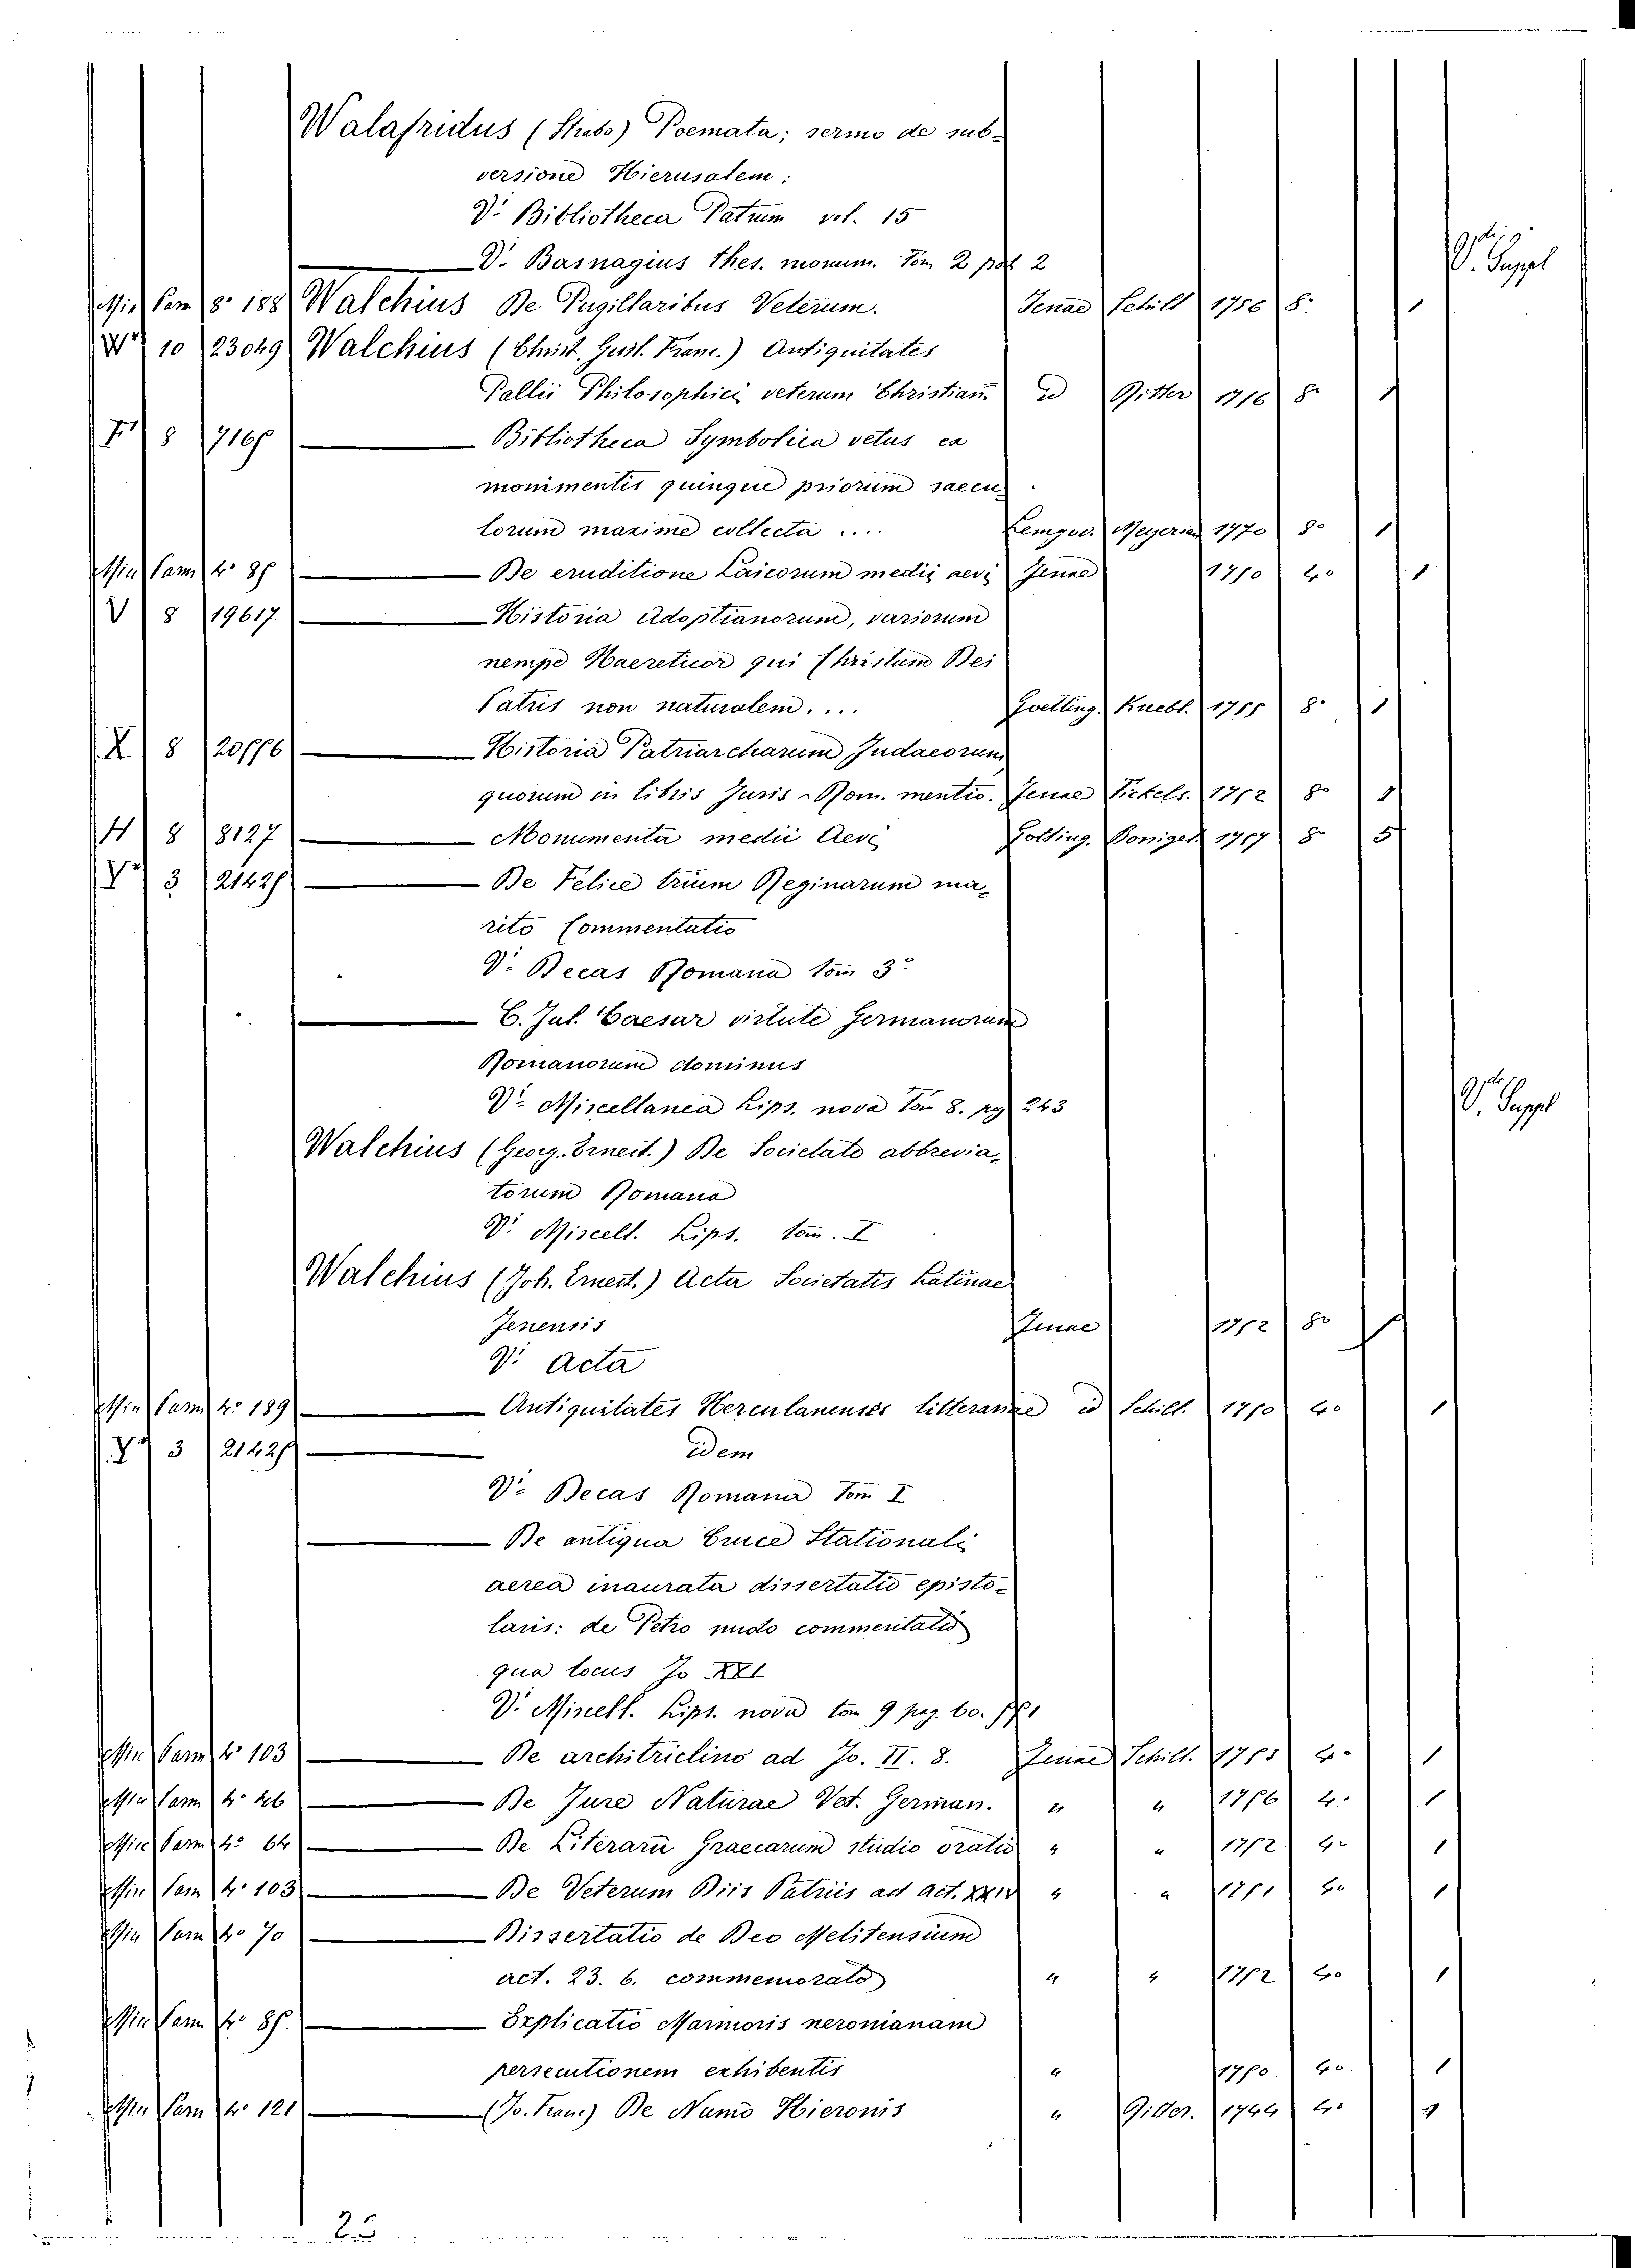 Walafridus (Strabo) Poemata; sermo de sub-
versione Hierusalem:
V. Bibliotheca Patrum vol. 15
V. Basnagius thes. monum. Tom 2 pat 2
V. Suppl
Min Cam 8º 188 Walchius De Pugillaribus Veterum. Jenae Schill 1756 8º 1
10 23049 Walchius (Christ. Guil. Franc.) Antiquitates
Pallii Philosophici veterum Christian. id Ritter 1716 8º 1
8 7165 Bibliotheca Symbolica vetus ex
monimentis quinque priorum saecu
lorum maxime collecta .... Lemgov. Meyerian 1770 8º 1
Min Cam 4º 85 De eruditione Laicorum medii aevi Jenae 1750 4º 1
V 8 19617 Historia Adoptianorum, variorum
nempe Haereticor qui Christum Dei
Patris non naturalem.... Goetting. Knebl. 1755 8º 1
X 8 20576 Historia Patriarcharum Judaeorum
quorum in libris Juris Rom. mentio. Jenae Fickels. 1752 8º 1
H 8 8127 Monumenta medii Aevi Gotting. Boniger 1757 8º 5
3 21425 De Felice trium Reginarum ma-
rito Commentatio
V. Decas Romana tom 3º
C. Jul. Caesar virtute Germanorum
Romanorum dominus
V. Miscellanea Lips. nova Tom 8. pg 243
V. Suppl
Walchius (Georg. Ernest.) De Societate abbrevia-
torum Romana
V. Miscell. Lips. tom. I
Walchius (Joh. Ernest.) Acta Societatis Latinae
Jenensis Jenae 1752 8º
V. Acta
Min Cam 4º 189 Antiquitates Herculanenses litterariae id Schill. 1750 4º 1
3 21425 idem
V. Decas Romana Tom I
De antiqua Cruce Stationali
aerea inaurata dissertatio episto-
laris: de Petro nudo commentatio
qua locus Jo XXI
V. Miscell. Lips. nova tom 9 pag. 60.
Min Cam 4º 103 De architriclino ad Jo. II. 8. Jenae Schill. 1755 4º 1
Min Cam 4º 46 De Jure Naturae Vet. German. " " 1756 4º 1
Min Cam 4º 64 De Literarū Graecarum studio oratio " " 1752 4º 1
Min Cam 4º 103 De Veterum Diis Patriis ad act. " " 1751 4º 1
Min Cam 4º 70 Dissertatio de Deo Melitensium
act. 23. 6. commemorato " " 1752 4º 1
Min Cam 4º 85. Explicatio Marmoris neronianam
persecutionem exhibentis " 1750 4º 1
Min Cam 4º 121 (Jo. Franc.) De Numo Hieronis " Gitter. 1744 4º 1
25